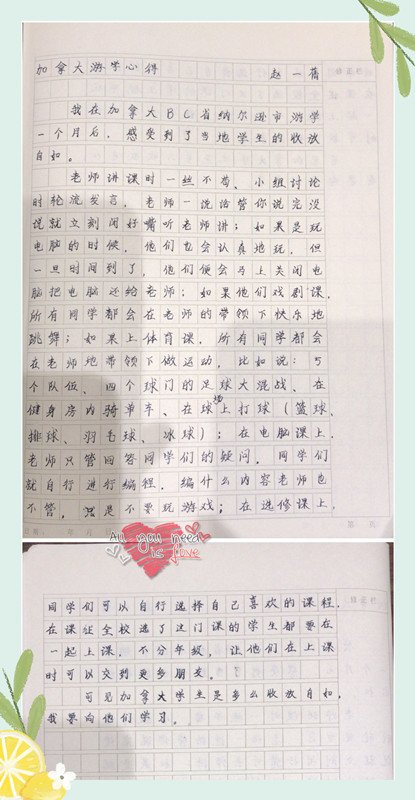 加拿大游学心得 赵一蔷
修正栏
我在加拿大BC省纳尔逊市游学
一个月后，感受到了当地学生的收放
自如。
老师讲课时一丝不苟、小组讨论
时轮流发言，老师一说话管你说完没
说就立刻闭好嘴听老师讲；如果是玩
电脑的时候，他们也会认真地玩，但
一旦时间到了，他们便会马上关闭电
脑把电脑还给老师；如果他们戏剧课，
所有同学都会在老师的带领下快乐地
跳舞；如果上体育课，所有同学都会
在老师地带领下做运动，比如说：5
个队伍、四个球门的足球大混战、在
健身房内骑单车、在球场上打球（篮球、
排球、羽毛球、冰球）；在电脑课上，
老师只管回答同学们的疑问，同学们
就自行进行编程，编什么内容老师也
不管，只是不要玩游戏；在选修课上，
日期： 年 月 第 页
All you need
is love
修正栏
同学们可以自行选择自己喜欢的课程，
在课征全校选了这门课的学生都要在
一起上课，不分年级，让他们在上课
时可以交到更多朋友。
可见加拿大学生是多么收放自如，
我要向他们学习。